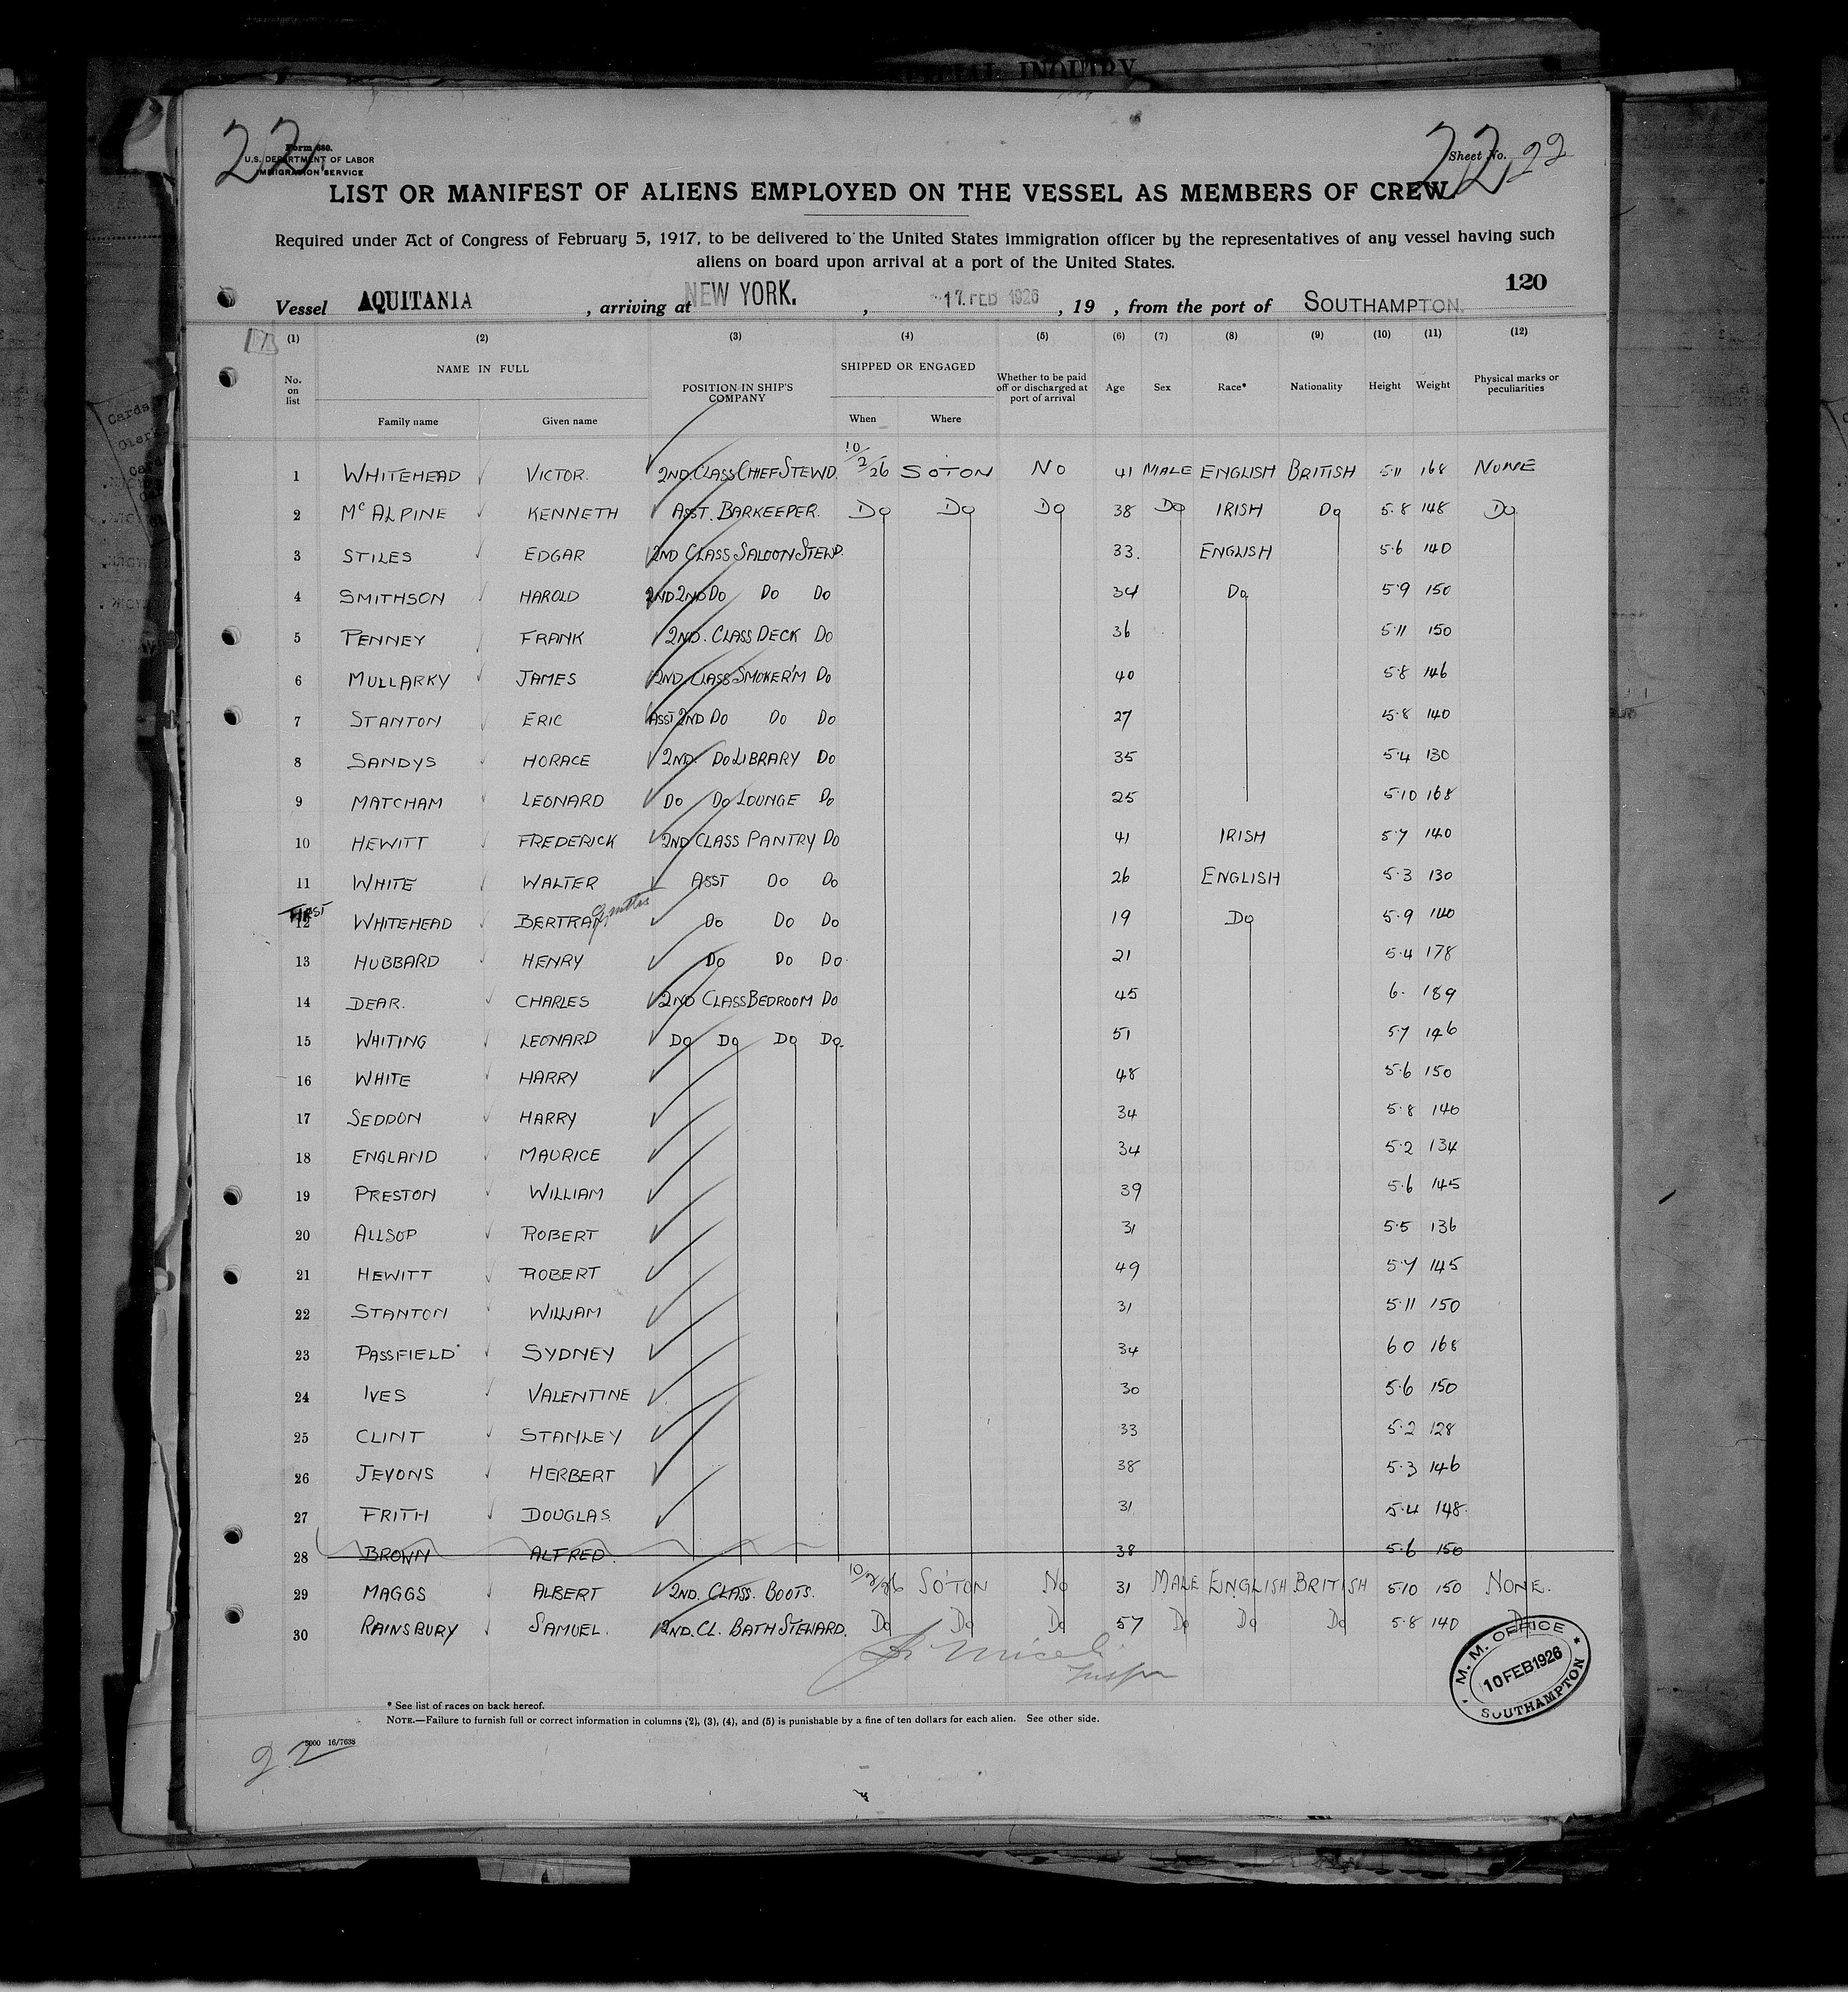 SPECIAL INQUIRY
22
22
Form 680.
U.S. DEPARTMENT OF LABOR
IMMIGRATION SERVICE
Sheet No. 22
LIST OR MANIFEST OF ALIENS EMPLOYED ON THE VESSEL AS MEMBERS OF CREW
Required under Act of Congress of February 5, 1917, to be delivered to the United States immigration officer by the representatives of any vessel having such
aliens on board upon arrival at a port of the United States.
120
Vessel AQUITANIA , arriving at NEW YORK. , 17. FEB 1926 , 19 , from the port of SOUTHAMPTON.
(1) (2) (3) (4) (5) (6) (7) (8) (9) (10) (11) (12)
No. on list NAME IN FULL Family name Given name POSITION IN SHIP'S COMPANY SHIPPED OR ENGAGED When Where Whether to be paid off or discharged at port of arrival Age Sex Race* Nationality Height Weight Physical marks or peculiarities
1 WHITEHEAD VICTOR. 2ND. CLASS CHIEF STEWD. 10/2/26 SOTON NO 41 MALE ENGLISH BRITISH 5·11 168 NONE
2 McALPINE KENNETH ASST. BARKEEPER. Do Do Do 38 Do IRISH Do 5·8 148 Do
3 STILES EDGAR 2ND CLASS SALOON STEWD. 33. ENGLISH 5·6 140
4 SMITHSON HAROLD 2ND 2ND Do Do Do 34 Do 5·9 150
5 PENNEY FRANK 2ND. CLASS DECK Do 36 5·11 150
6 MULLARKY JAMES 2ND. CLASS SMOKER'M Do 40 5·8 146
7 STANTON ERIC ASST 2ND Do Do Do 27 5·8 140
8 SANDYS HORACE 2ND. Do LIBRARY Do 35 5·4 130
9 MATCHAM LEONARD Do Do LOUNGE Do 25 5·10 168
10 HEWITT FREDERICK 2ND CLASS PANTRY Do 41 IRISH 5·7 140
11 WHITE WALTER ASST Do Do 26 ENGLISH 5·3 130
FIRST
12 WHITEHEAD BERTRAM Do Do Do 19 Do 5·9 140
13 HUBBARD HENRY Do Do Do. 21 5·4 178
14 DEAR. CHARLES 2ND CLASS BEDROOM Do 45 6· 189
15 WHITING LEONARD Do Do Do Do. 51 5·7 146
16 WHITE HARRY 48 5·6 150
17 SEDDON HARRY 34 5·8 140
18 ENGLAND MAURICE 34 5·2 134
19 PRESTON WILLIAM 39 5·6 145
20 ALLSOP ROBERT 31 5·5 136
21 HEWITT ROBERT 49 5·7 145
22 STANTON WILLIAM 31 5·11 150
23 PASSFIELD SYDNEY 34 6 0 168
24 IVES VALENTINE 30 5·6 150
25 CLINT STANLEY 33 5·2 128
26 JEVONS HERBERT 38 5·3 146
27 FRITH DOUGLAS 31 5·4 148.
28 BROWN ALFRED. 38 5·6 150
29 MAGGS ALBERT 2ND. CLASS. BOOTS. 10/2/26 SO'TON No 31 MALE ENGLISH BRITISH 5·10 150 NONE.
30 RAINSBURY SAMUEL. 2ND. CL. BATH STEWARD. Do Do Do 57 Do Do Do 5·8 140 Do
M. M. OFFICE
10 FEB 1926
SOUTHAMPTON
* See list of races on back hereof.
NOTE.—Failure to furnish full or correct information in columns (2), (3), (4), and (5) is punishable by a fine of ten dollars for each alien. See other side.
5000 16/7638
22